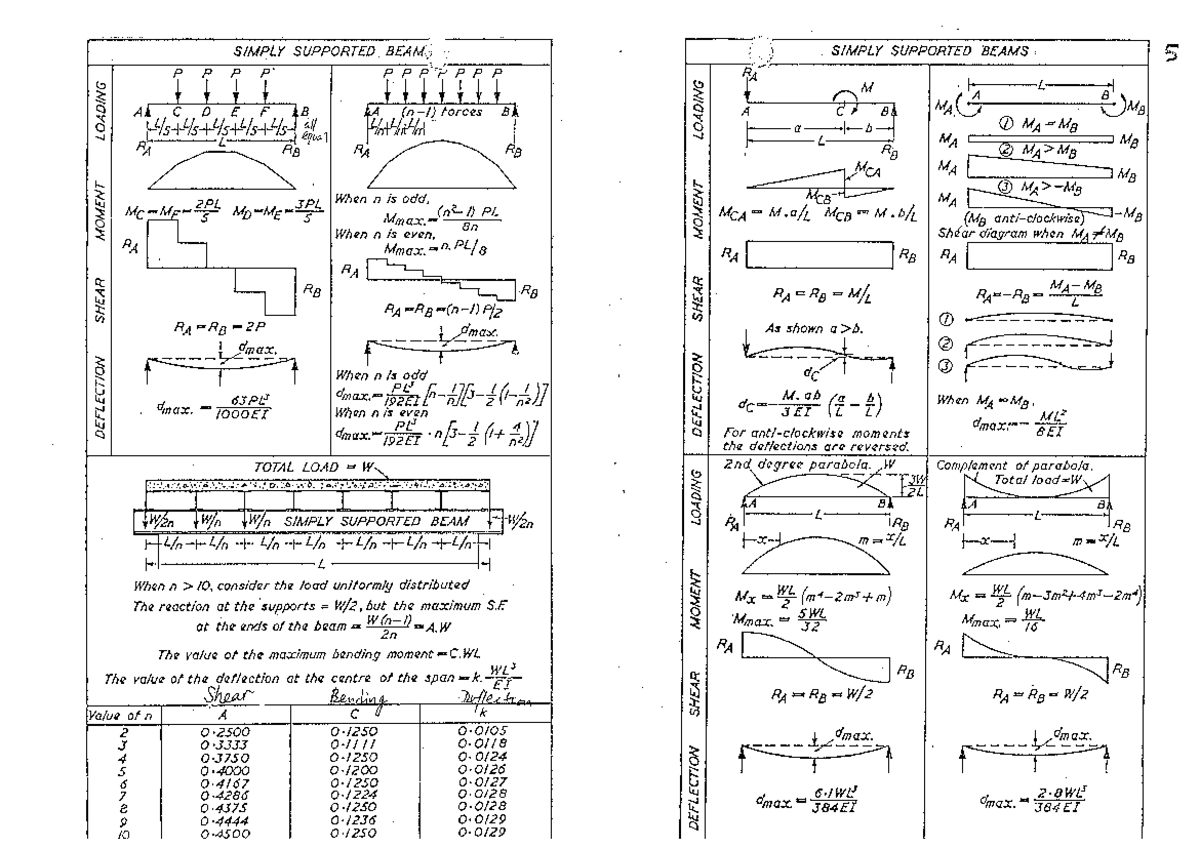 SIMPLY SUPPORTED BEAMS
LOADING
P P P P
A C D E F B
L/5 L/5 L/5 L/5 L/5
all equal
L
R_A R_B
MOMENT
M_C = M_F = 2PL/5 M_D = M_E = 3PL/5
SHEAR
R_A R_B
R_A = R_B = 2P
DEFLECTION
dmax.
dmax. = 63PL³/1000EI
P P P P P P P
A (n-1) forces B
L/n L/n L/n
R_A R_B
When n is odd,
Mmax. = (n²-1) PL/8n
When n is even,
Mmax. = n.PL/8
R_A R_B
R_A = R_B = (n-1) P/2
dmax.
When n is odd
dmax. = PL³/192EI [n - 1/n][3 - 1/2 (1 - 1/n²)]
When n is even
dmax. = PL³/192EI · n[3 - 1/2 (1 + 4/n²)]
TOTAL LOAD = W
W/2n W/n W/n SIMPLY SUPPORTED BEAM W/2n
L/n L/n L/n L/n L/n L/n L/n
L
When n > 10, consider the load uniformly distributed
The reaction at the supports = W/2, but the maximum S.F.
at the ends of the beam = W(n-1)/2n = A.W
The value of the maximum bending moment = C.WL
The value of the deflection at the centre of the span = k. WL³/EI
Shear Bending Deflection
Value of n A C k
2 0·2500 0·1250 0·0105
3 0·3333 0·1111 0·0118
4 0·3750 0·1250 0·0124
5 0·4000 0·1200 0·0126
6 0·4167 0·1250 0·0127
7 0·4286 0·1224 0·0128
8 0·4375 0·1250 0·0128
9 0·4444 0·1236 0·0129
10 0·4500 0·1250 0·0129
SIMPLY SUPPORTED BEAMS
5
LOADING
R_A M
A C B
a b
L
R_B
MOMENT
M_CA
M_CB
M_CA = M.a/L M_CB = M.b/L
SHEAR
R_A R_B
R_A = R_B = M/L
DEFLECTION
As shown a > b.
d_C
d_C = M.ab/3EI (a/L - b/L)
For anti-clockwise moments
the deflections are reversed.
L
A B
M_A M_B
① M_A = M_B
M_A M_B
② M_A > M_B
M_A M_B
③ M_A > -M_B
M_A -M_B
(M_B anti-clockwise)
Shear diagram when M_A ≠ M_B
R_A R_B
R_A = -R_B = M_A - M_B/L
①
②
③
When M_A = M_B,
dmax. = - ML²/8EI
LOADING
2nd degree parabola. W
3W/2L
A B
L
R_A R_B
x m = x/L
MOMENT
Mx = WL/2 (m⁴ - 2m³ + m)
Mmax. = 5WL/32
SHEAR
R_A R_B
R_A = R_B = W/2
DEFLECTION
dmax.
dmax. = 6·1WL³/384EI
Complement of parabola.
Total load = W
A B
L
R_A R_B
x m = x/L
Mx = WL/2 (m - 3m² + 4m³ - 2m⁴)
Mmax. = WL/16
R_A R_B
R_A = R_B = W/2
dmax.
dmax. = 2·8WL³/384EI